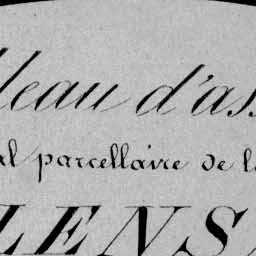 leau d'ass
al parcellaire de l
LENS